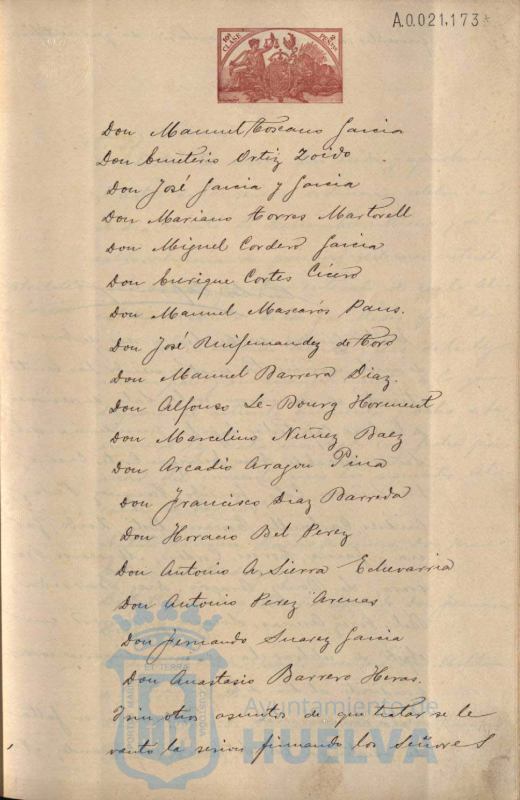 A.0.021,173
10ª CLASE
2 PESETAS
Don Manuel Toscano Garcia
Don Emeterio Ortiz Zoido
Don José Garcia y Garcia
Don Mariano Torres Martorell
Don Miguel Cordero Garcia
Don Enrique Cortes Cicero
Don Manuel Mascarós Pans.
Don José Ruifernandez de Toro
Don Manuel Barrera Diaz.
Don Alfonso Le-Bourg Horment
Don Marcelino Nuñez Baez
Don Arcadio Aragon Pina
Don Francisco Diaz Barreda
Don Horacio Bel Perez
Don Antonio A. Sierra Echevarria
Don Antonio Perez Arenas
Don Fernando Suarez Garcia
Don Anastasio Barrero Heras.
Y sin otros asuntos de que tratar se le
vantó la sesion firmando los Señores
Ayuntamiento de
HUELVA
PORTUS MARIS ET TERRAE CUSTODIA